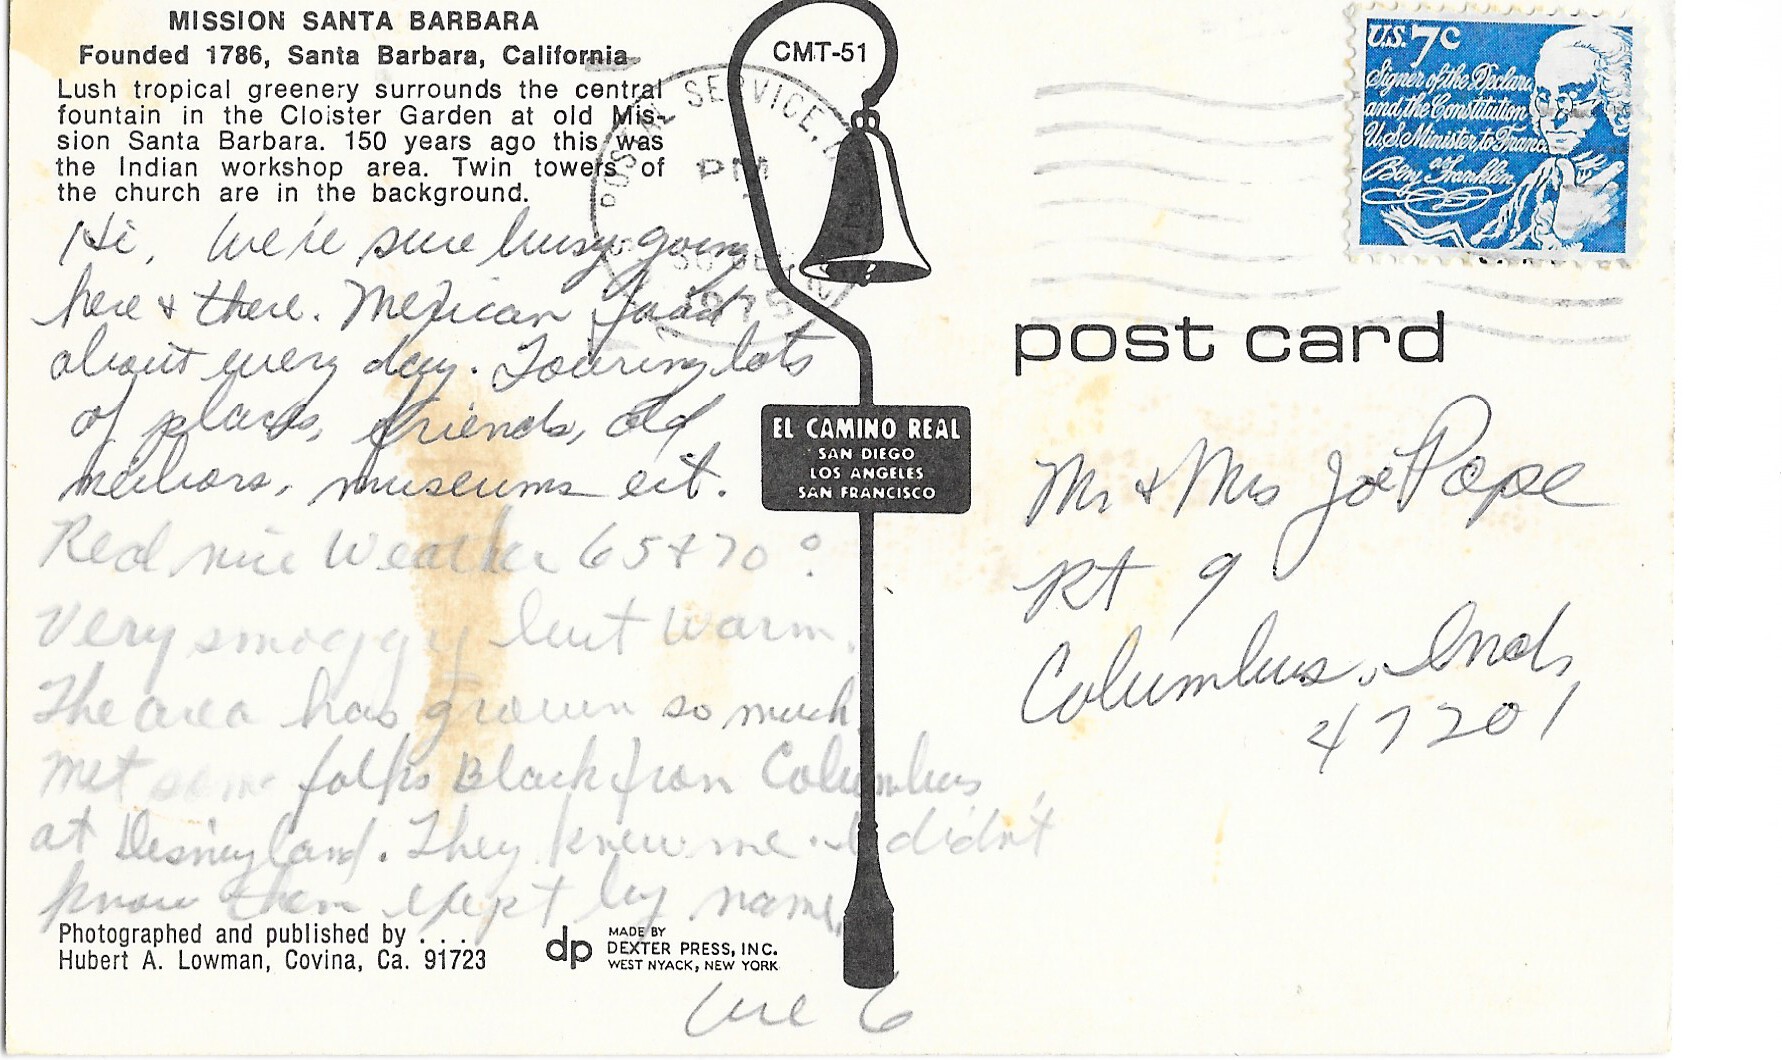 MISSION SANTA BARBARA
Founded 1786, Santa Barbara, California
Lush tropical greenery surrounds the central
fountain in the Cloister Garden at old Mis-
sion Santa Barbara. 150 years ago this was
the Indian workshop area. Twin towers of
the church are in the background.
Hi, We're sure busy going
here & there. Mexican food
about every day. Touring lots
of places, friends, old
neihors, museums ect.
Real nice Weather 65 & 70°
Very smoggy but warm.
The area has grown so much
Met some folks Black from Columbus
at Disneyland. They knew me. I didn't
know them exept by name.
Photographed and published by . . .
Hubert A. Lowman, Covina, Ca. 91723
dp MADE BY
DEXTER PRESS, INC.
WEST NYACK, NEW YORK
We 6
CMT-51
POSTAL SERVICE,
PM
1975
EL CAMINO REAL
SAN DIEGO
LOS ANGELES
SAN FRANCISCO
U.S. 7c
Signer of the Declara
and the Constitution
U.S. Minister to France
Benj Franklin
post card
Mr & Mrs Joe Pope
Rt 9
Columbus, Ind,
47201